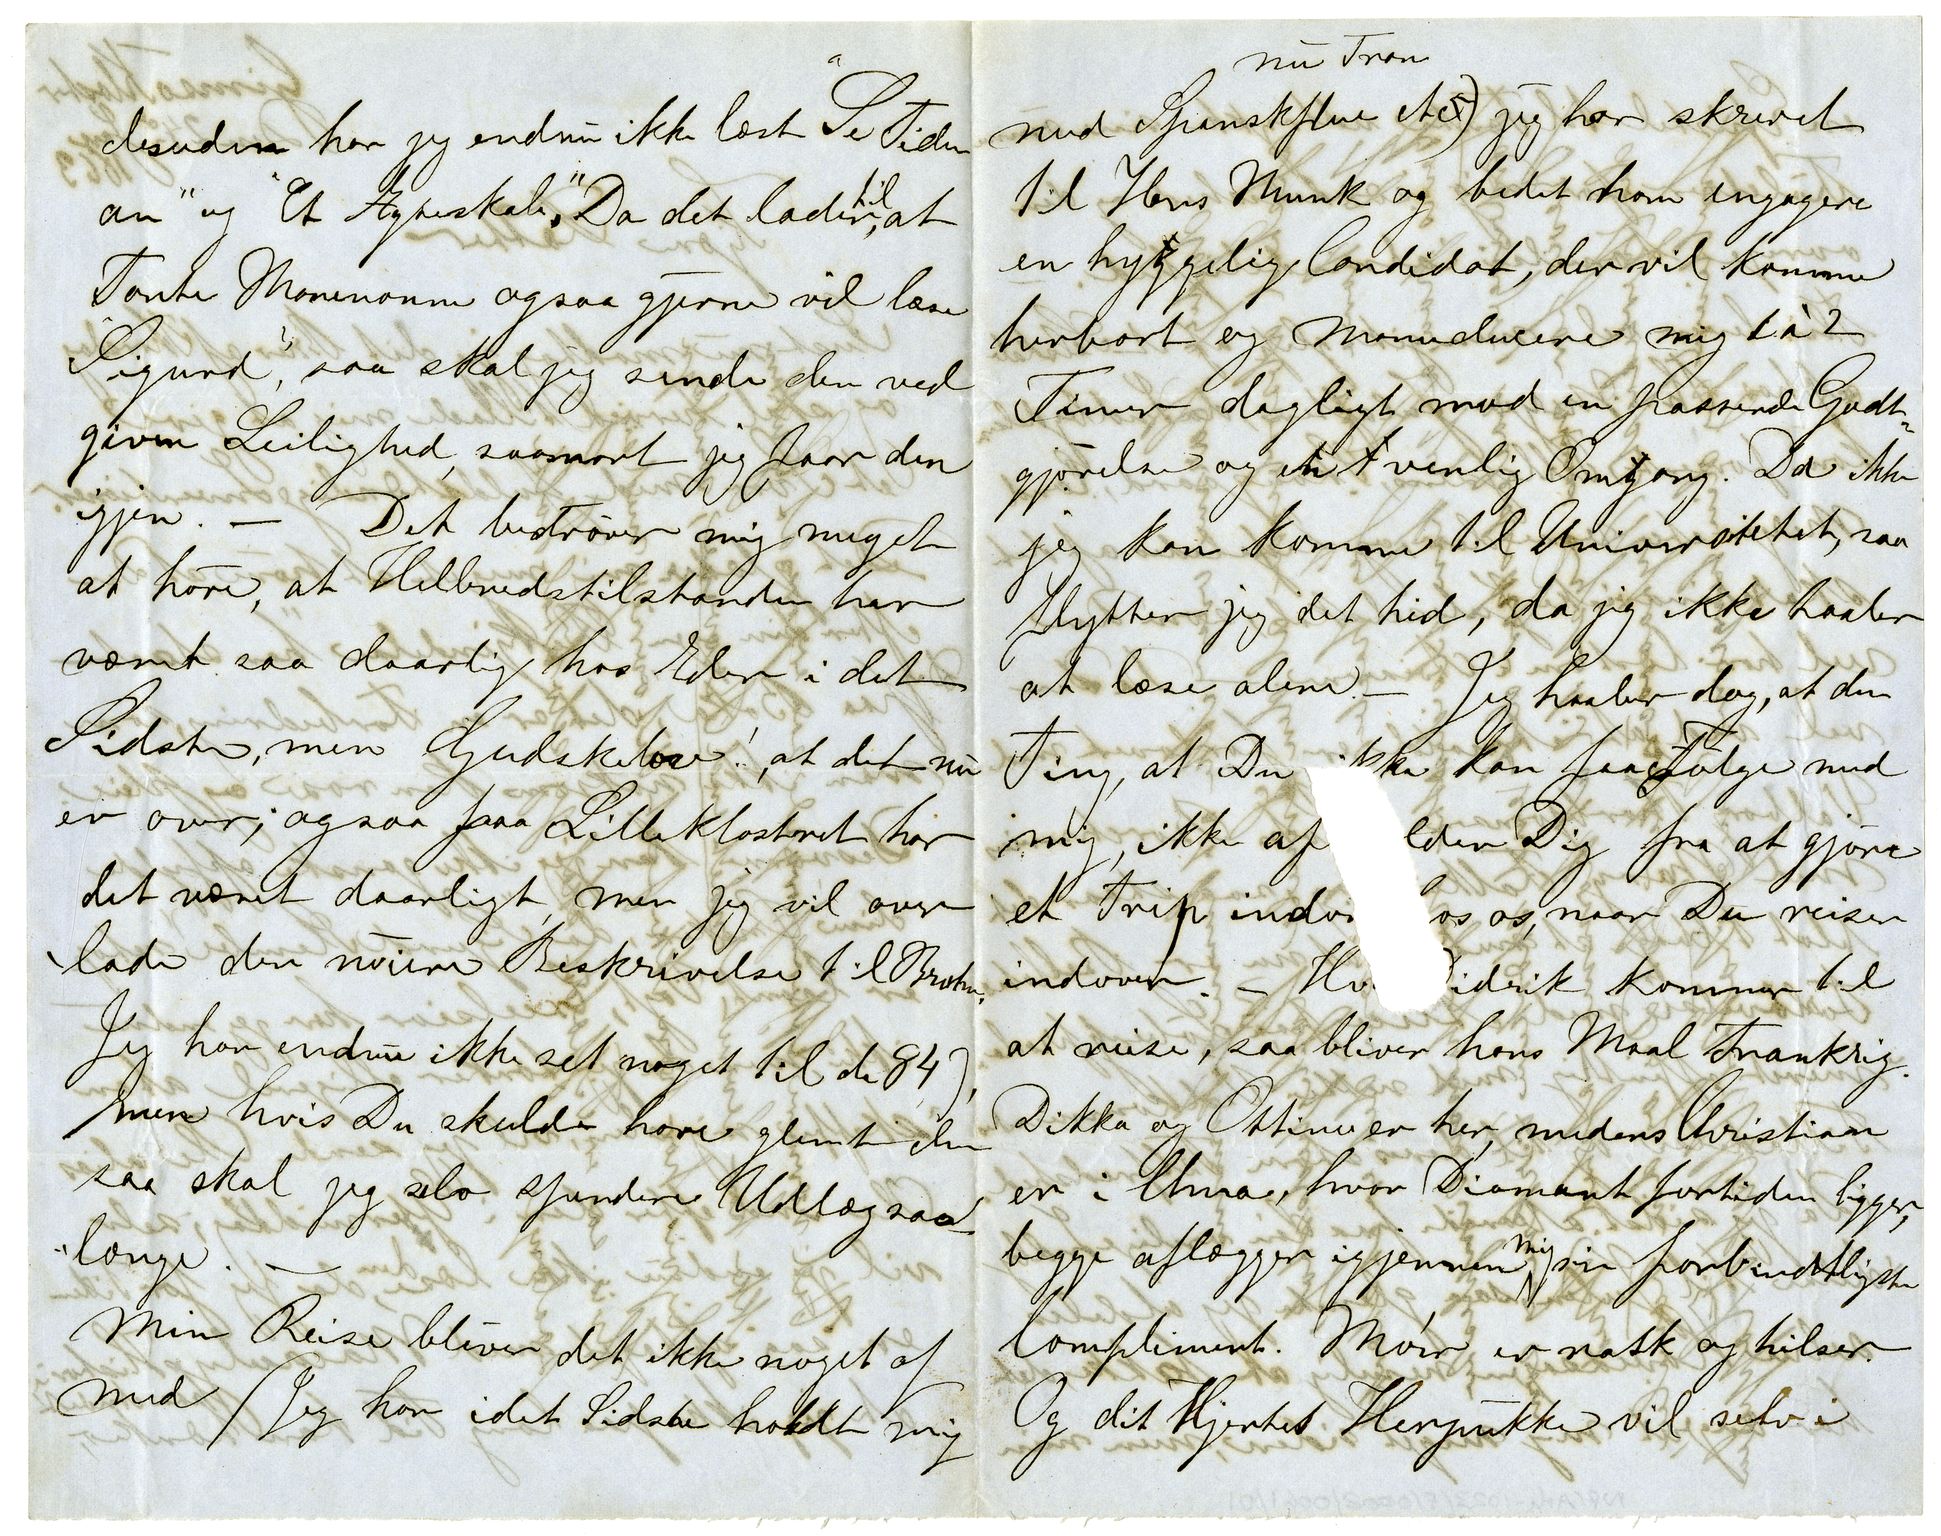 desuden har jeg endnu ikke læst "Se Tiden
an" og "Et Ægteskab". Da det lader til, at
Tante Monemonne ogsaa gjerne vil læse
"Sigurd", saa skal jeg sende den ved
given Leilighed, saasnart jeg faar den
igjen. — Det bedrøver mig meget
at høre, at Helbredstilstanden har
været saa daarlig hos Eder i det
Sidste, men Gudskelov!, at det nu
er over; ogsaa paa Lilleklosteret har
det været daarligt, men jeg vil over
lade den nøiere Beskrivelse til
Jeg har endnu ikke set noget til de 84),
men hvis Du skulde have glemt den
saa skal jeg selv spendere Udlæg saa
længe. —
Min Reise bliver det ikke noget af
med / Jeg har i det Sidste holdt mig
nu Tran
med Spanskflue etc) jeg har skrevet
til Hans Munk og bedet ham engagere
en hyggelig Candidat, der vil komme
herbort og manuducere mig 1 à 2
Timer dagligt mod en passende Godt-
gjørelse og en venlig Omgang. Da ikke
jeg kan komme til Universitetet, saa
flytter jeg det hid, da jeg ikke taaler
at læse alene. — Jeg haaber dog, at den
Ting, at Du ikke kan faa Følge med
mig, ikke af lder Dig fra at gjøre
et Trip indo os os, naar Du reiser
indover. — Hv idrik kommer til
at reise, saa bliver hans Maal Frankrig.
Dikka og Ottine er her, medens Christian
er i Umea, hvor Diamant fortiden ligger,
begge aflægger igjennem mig sin forbindtligste
Compliment. Mo'er er rask og hilser.
Og dit Hjertes Herpukke vil selv i